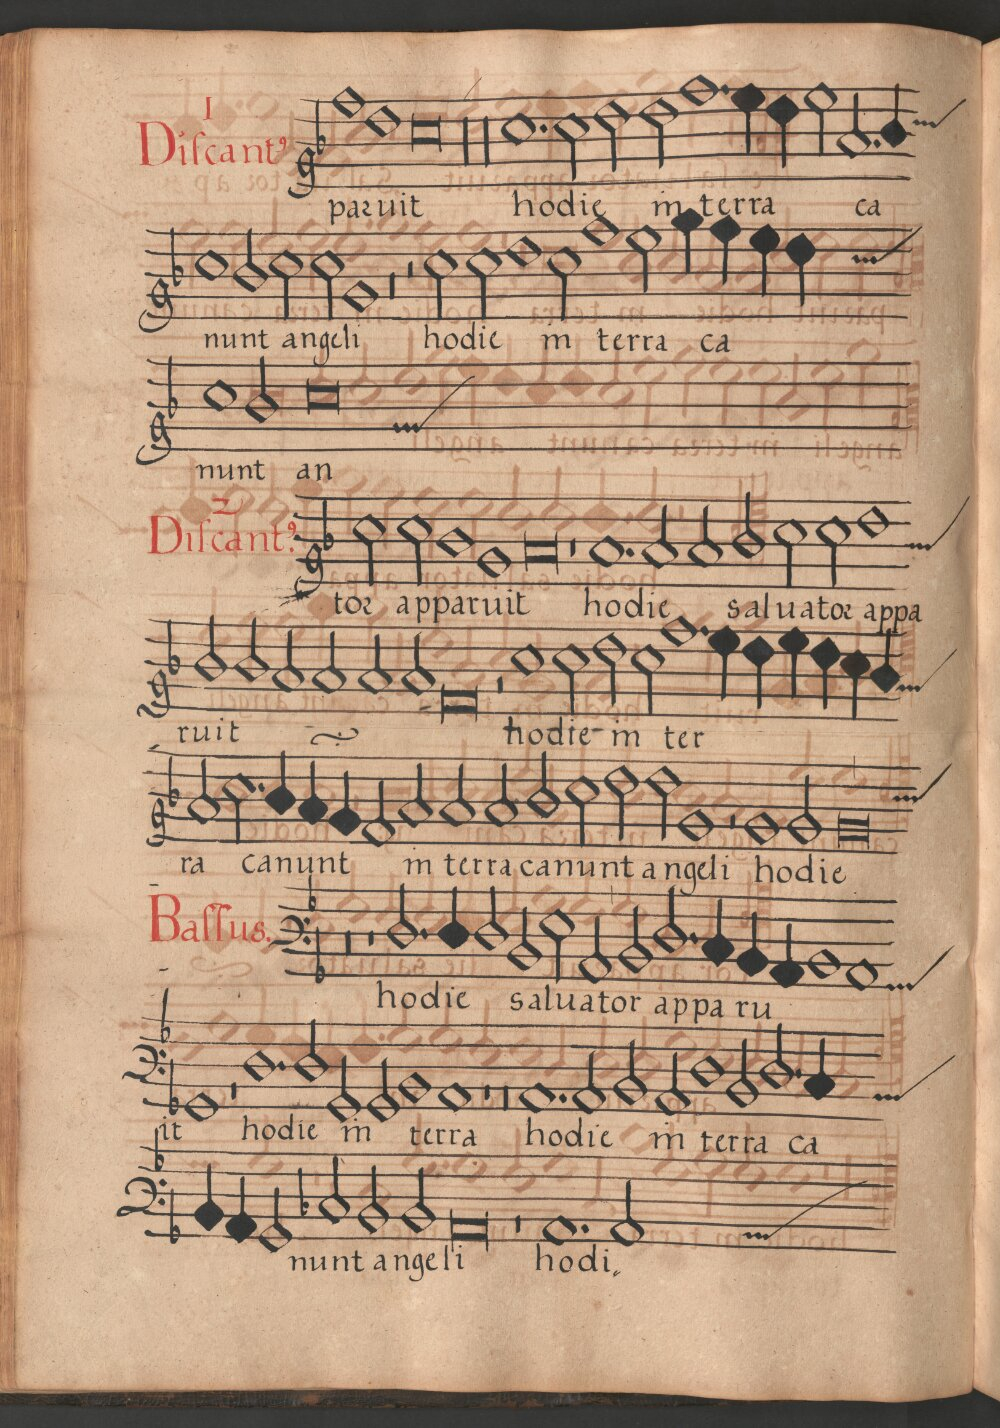 1
Discant⁹
paruit hodie in terra ca
nunt angeli hodie in terra ca
nunt an
2
Discant⁹.
tor apparuit hodie saluator appa
ruit hodie in ter
ra canunt in terra canunt angeli hodie
Bassus.
hodie saluator apparu
it hodie in terra hodie in terra ca
nunt angeli hodi,